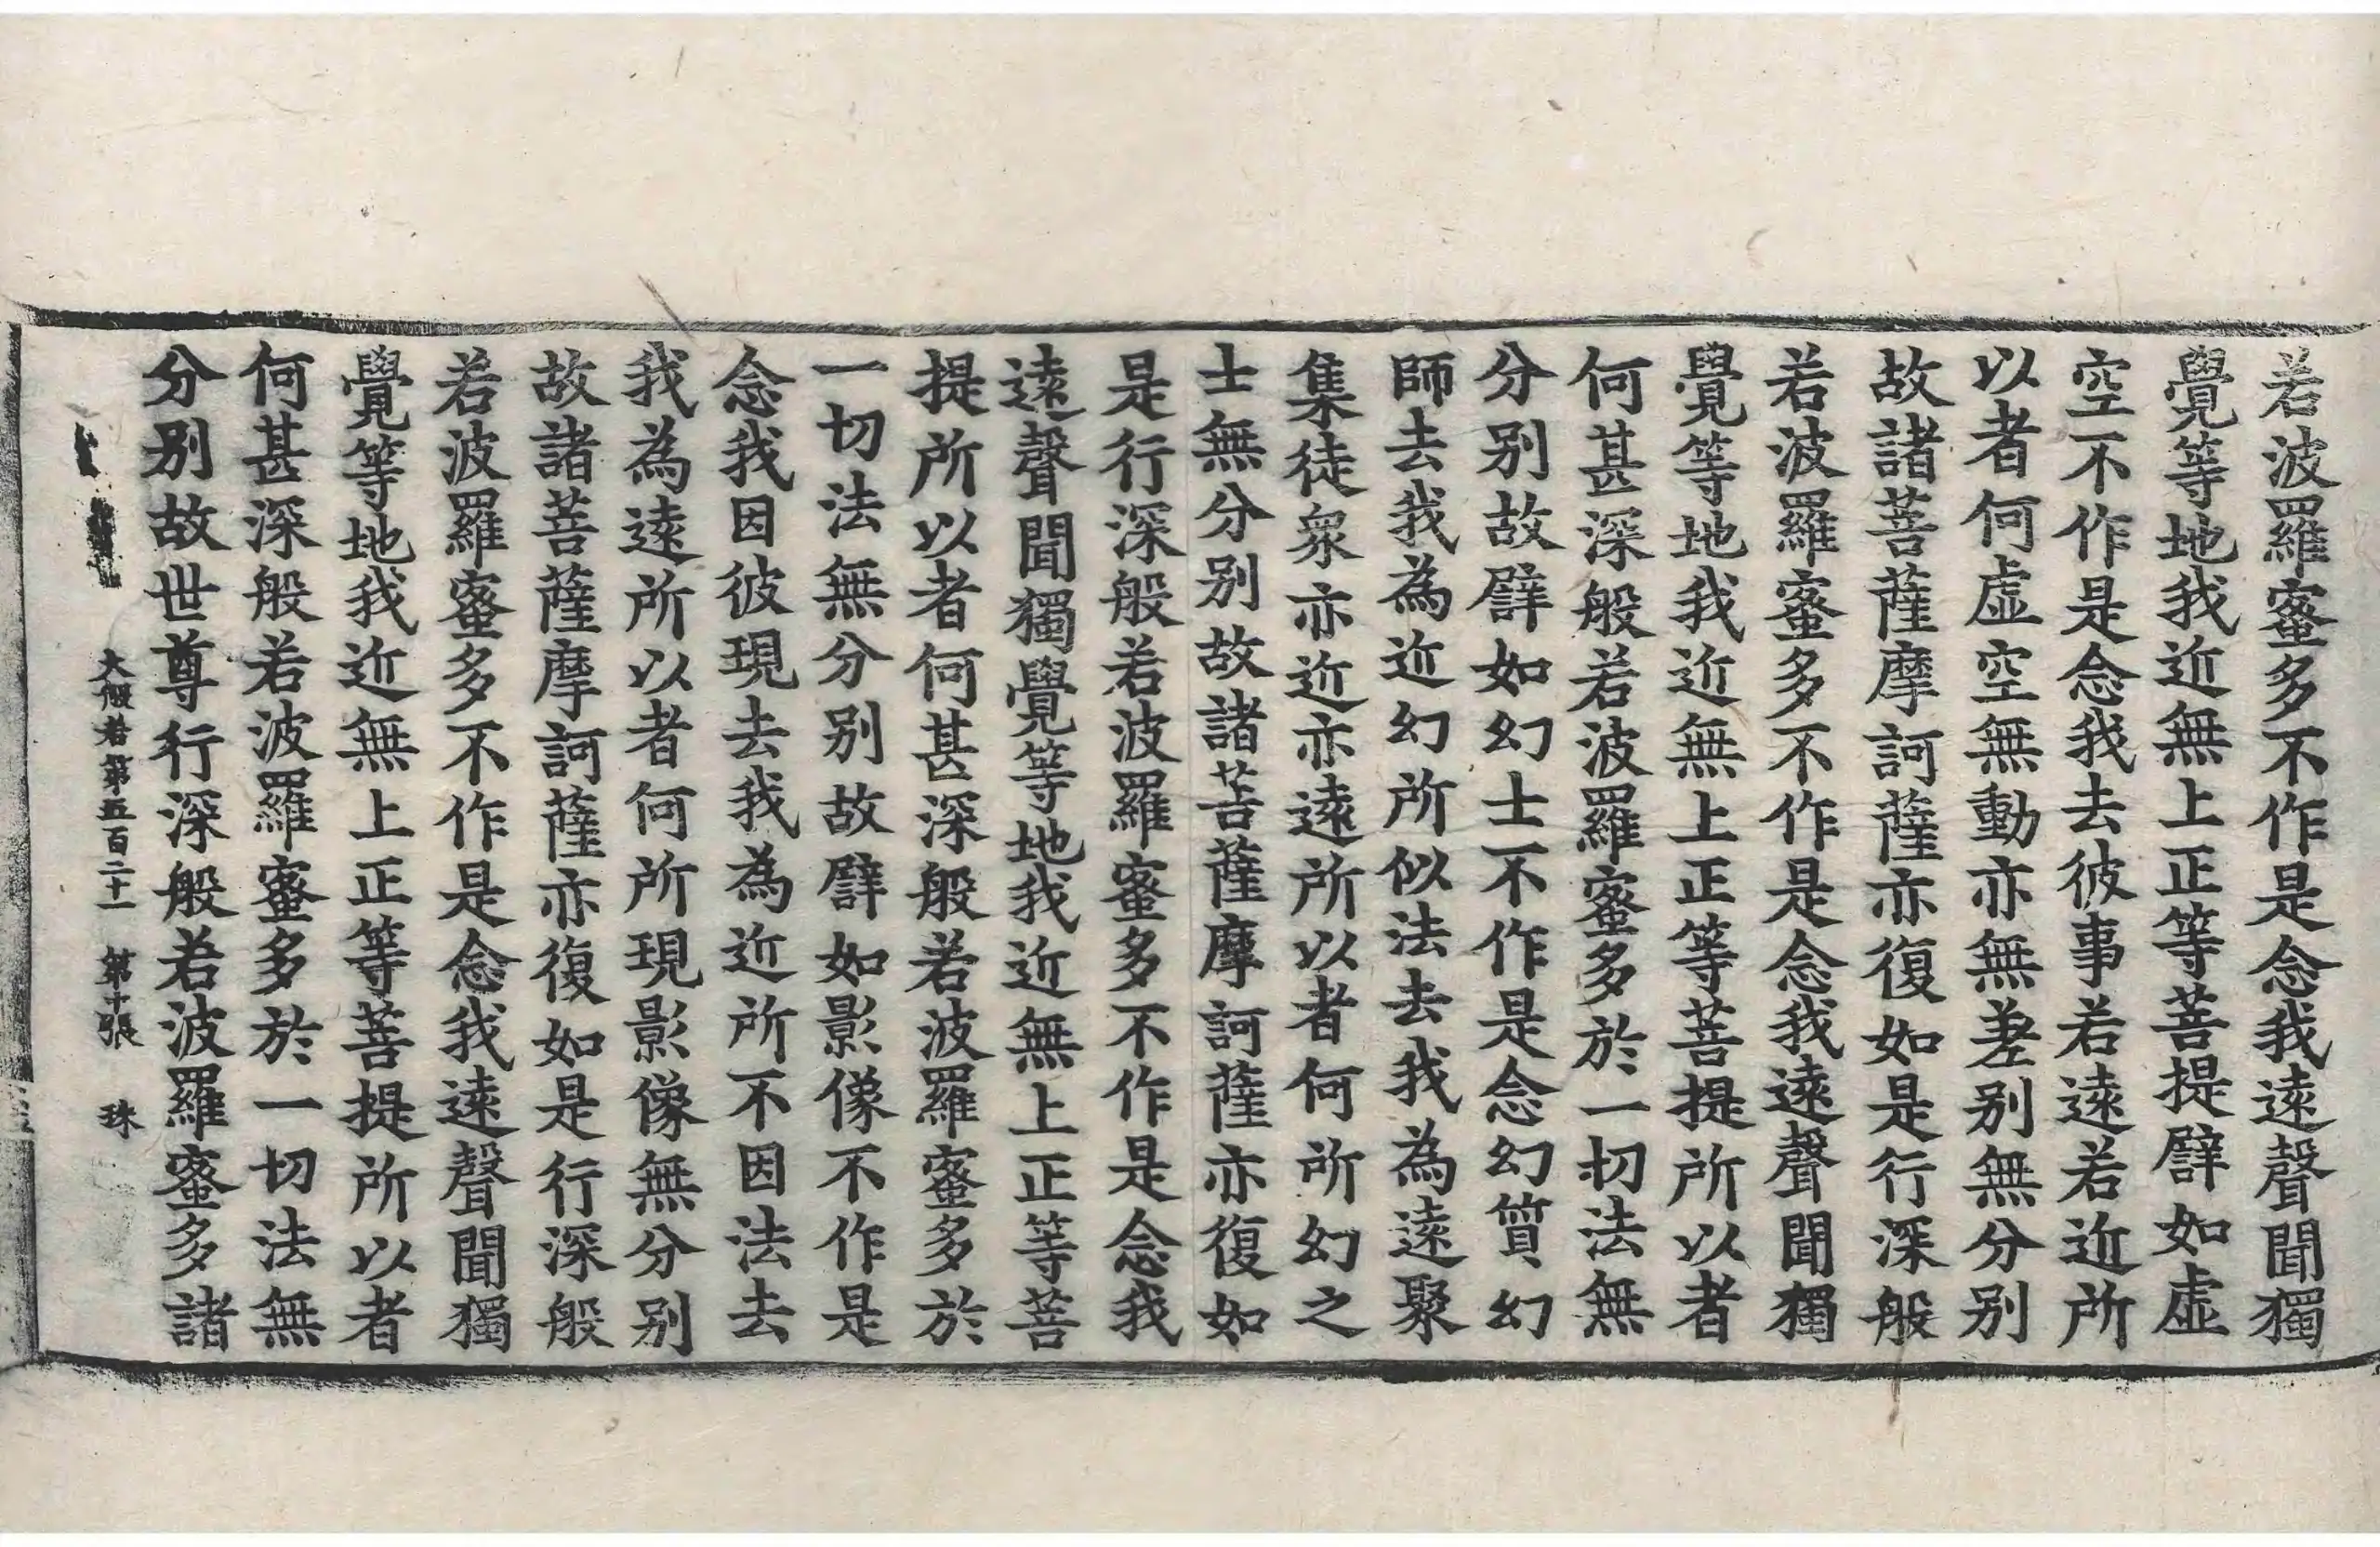 若波羅蜜多不作是念我遠聲聞獨
覺等地我近無上正等菩提譬如虛
空不作是念我去彼事若遠若近所
以者何虛空無動亦無差別無分別
故諸菩薩摩訶薩亦復如是行深般
若波羅蜜多不作是念我遠聲聞獨
覺等地我近無上正等菩提所以者
何甚深般若波羅蜜多於一切法無
分別故譬如幻士不作是念幻質幻
師去我為近幻所似法去我為遠聚
集徒衆亦近亦遠所以者何所幻之
士無分別故諸菩薩摩訶薩亦復如
是行深般若波羅蜜多不作是念我
遠聲聞獨覺等地我近無上正等菩
提所以者何甚深般若波羅蜜多於
一切法無分別故譬如影像不作是
念我因彼現去我為近所不因法去
我為遠所以者何所現影像無分別
故諸菩薩摩訶薩亦復如是行深般
若波羅蜜多不作是念我遠聲聞獨
覺等地我近無上正等菩提所以者
何甚深般若波羅蜜多於一切法無
分別故世尊行深般若波羅蜜多諸
大般若第五百二十一 第十張 珠